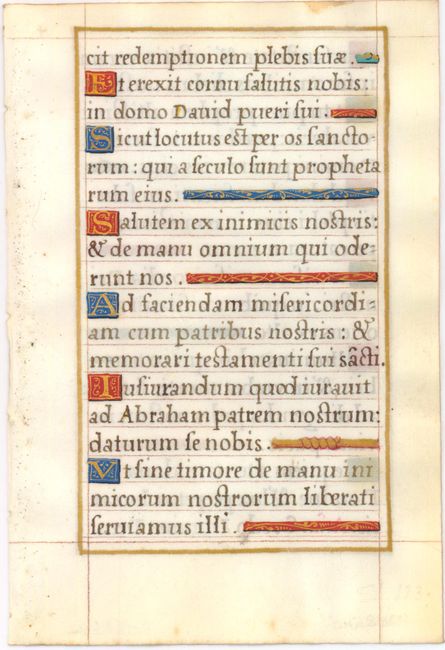 cit redemptionem plebis suæ.
Et erexit cornu salutis nobis:
in domo Dauid pueri sui.
Sicut locutus est per os sancto-
rum: qui a seculo sunt propheta
rum eius.
Salutem ex inimicis nostris:
& de manu omnium qui ode-
runt nos.
Ad faciendam misericordi-
am cum patribus nostris: &
memorari testamenti sui sãcti.
Iusiurandum quod iurauit
ad Abraham patrem nostrum:
daturum se nobis.
Vt sine timore de manu ini
micorum nostrorum liberati
seruiamus illi.